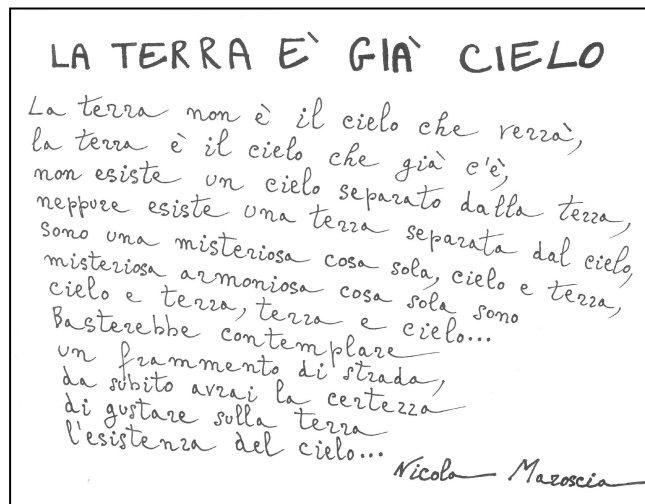 LA TERRA E` GIA` CIELO
La terra non è il cielo che verrà,
la terra è il cielo che già c'è,
non esiste un cielo separato dalla terra,
neppure esiste una terra separata dal cielo,
sono una misteriosa cosa sola, cielo e terra,
misteriosa armoniosa cosa sola sono
cielo e terra, terra e cielo...
Basterebbe contemplare
un frammento di strada,
da subito avrai la certezza
di gustare sulla terra
l'esistenza del cielo...
Nicola Maroscia